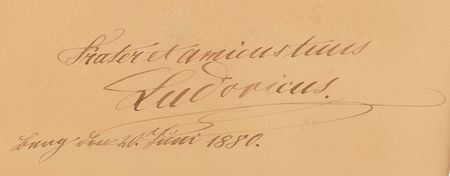 Frater et amicus tuus
Ludovicus.
Berg den 20. Juni 1880.